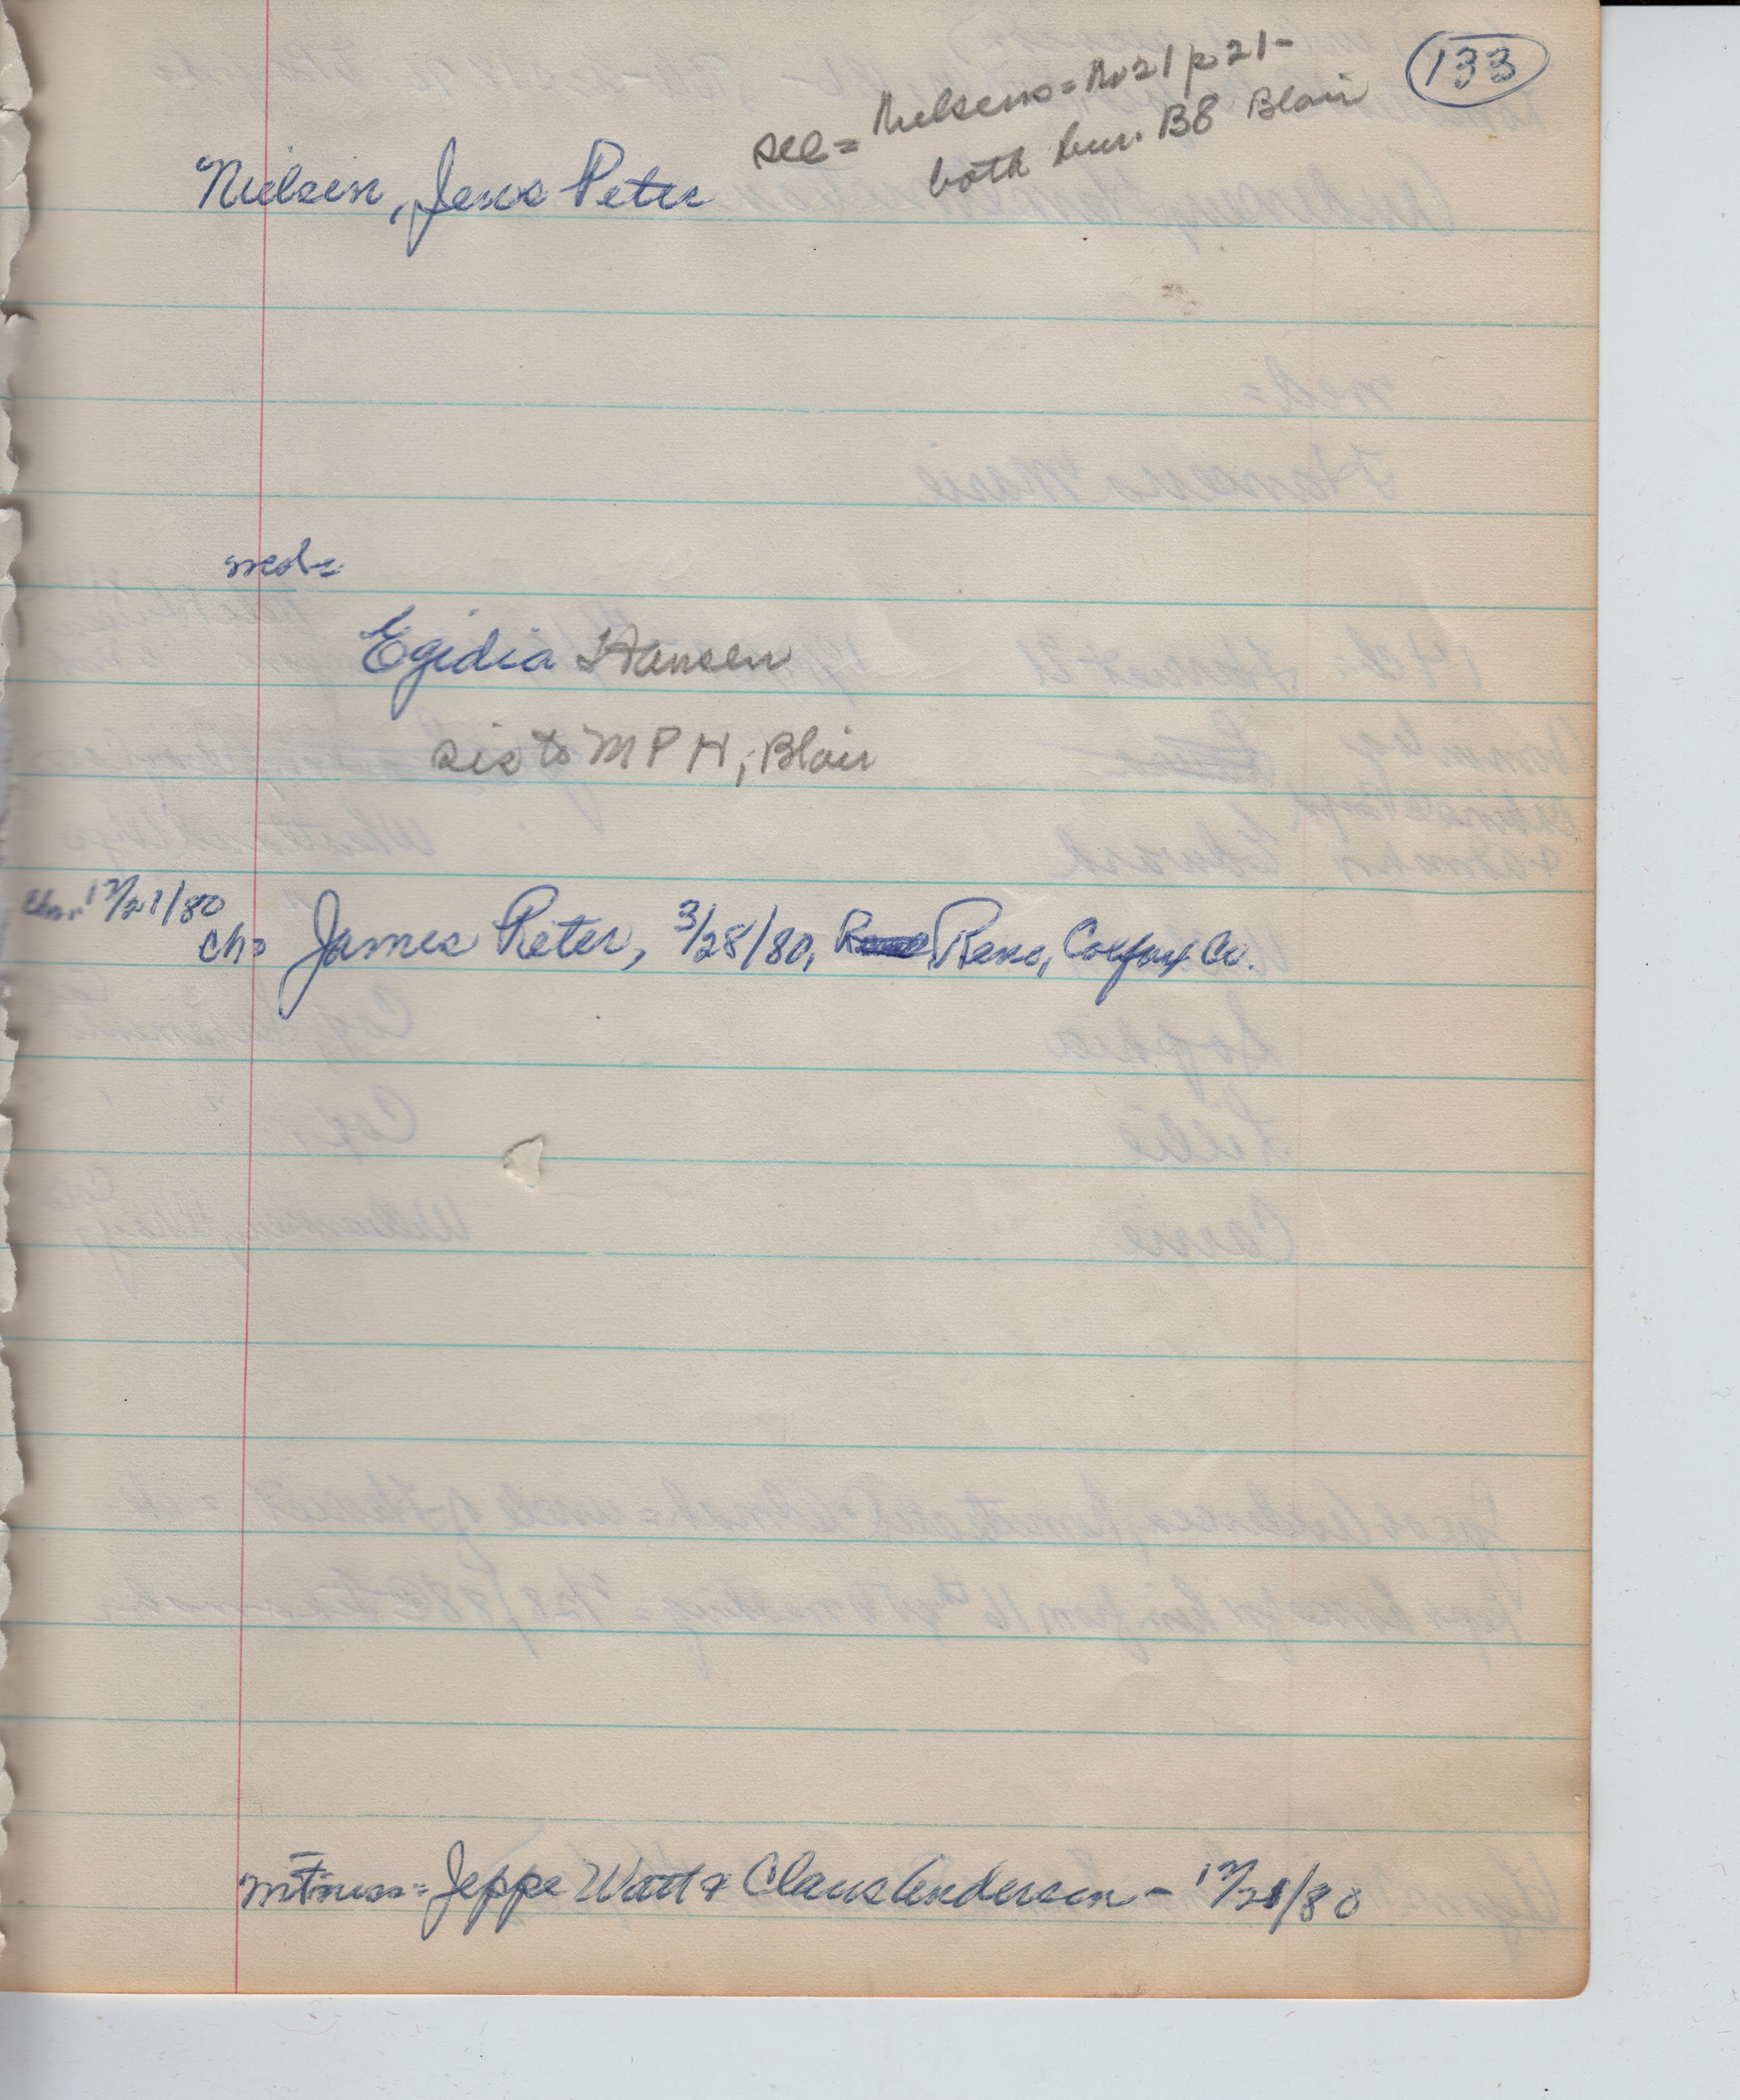 133
see = Nielsens = No 21 p 21-
both bur. B8 Blair
Nielsen, Jens Peter
med=
Egidia Hansen
sis to M P H, Blair
Chr. 12/21/80
Ch= James Peter, 3/28/80, Reno, Colfax Co.
witness = Jeppe Watt & Claus Andersen - 12/21/80